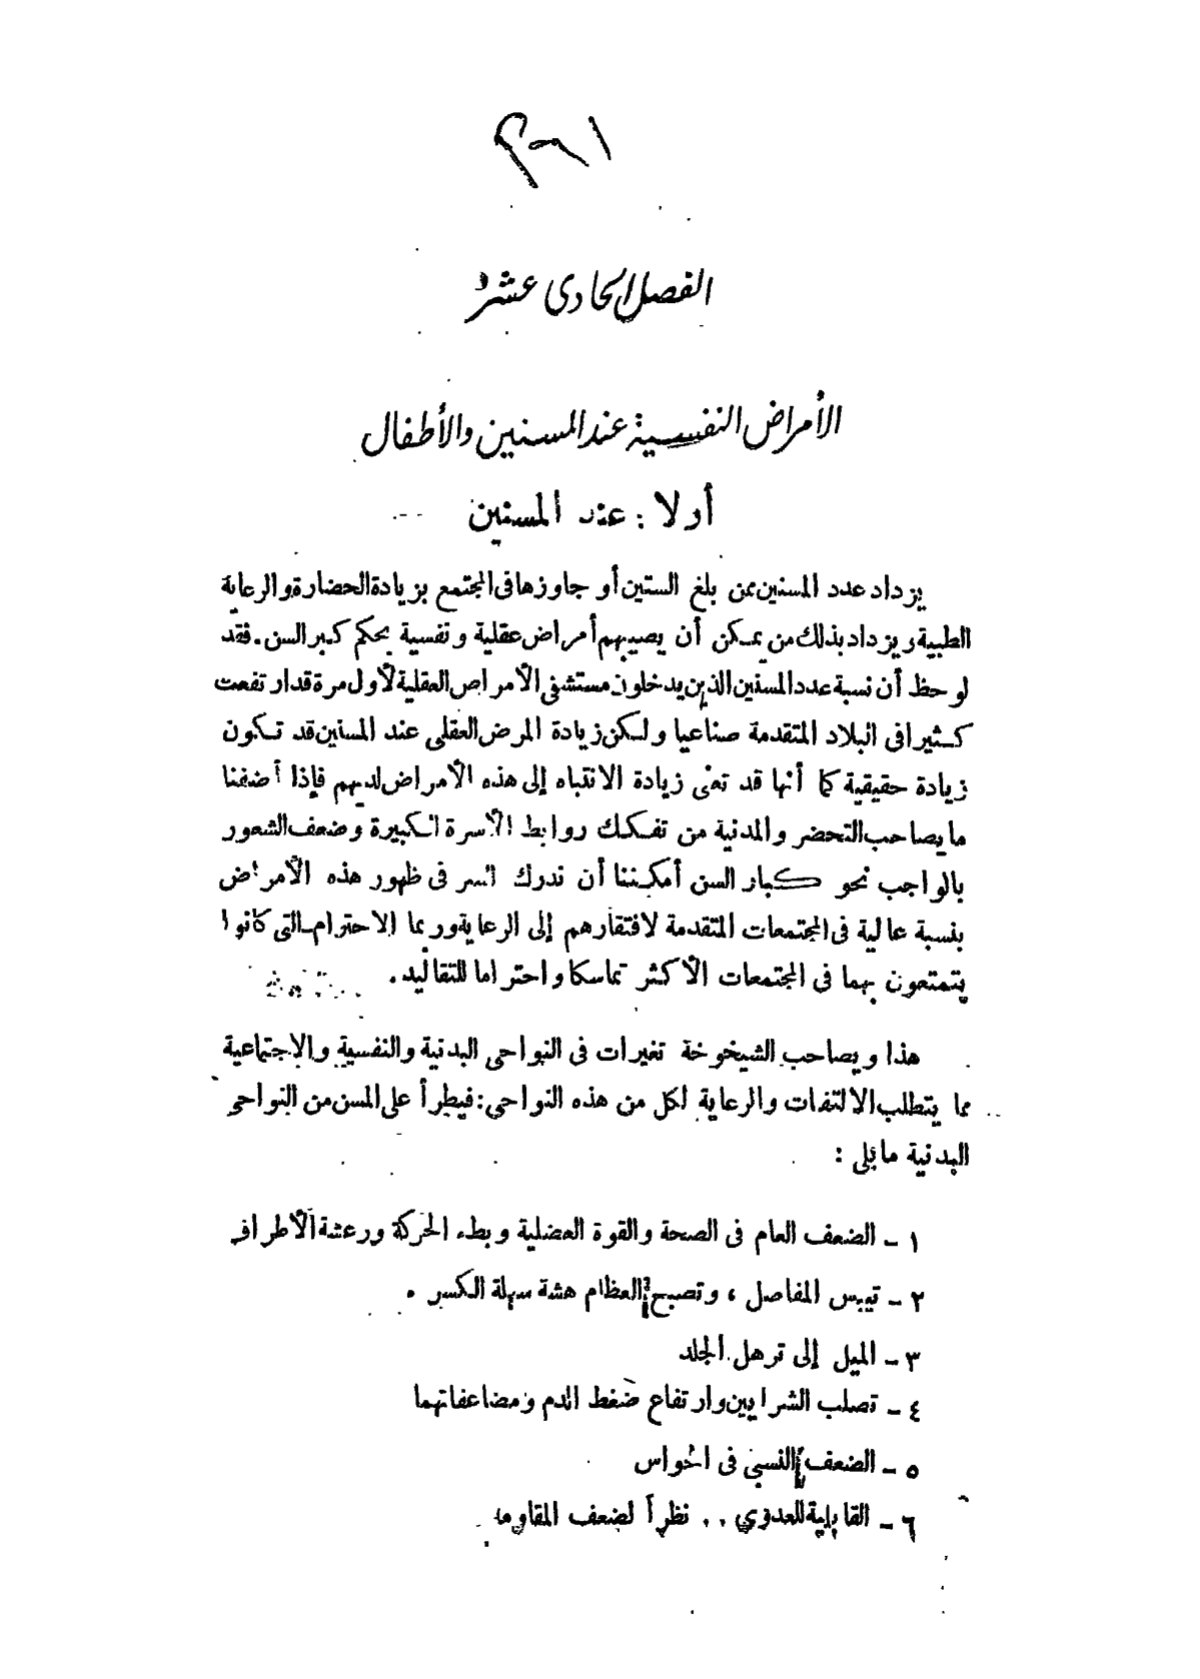 الفصل الحادى عشر
الأمراض النفسية عند المسنين والأطفال
أولا : عند المسنين
يزداد عدد المسنين ممن بلغ الستين أو جاوزها فى المجتمع بزيادة الحضارة والرعاية
الطبية ويزداد بذلك من يمكن أن يصيبهم أمراض عقلية ونفسية بحكم كبر السن . فقد
لوحظ أن نسبة عدد المسنين الذين يدخلون مستشفى الأمراض العقلية لأول مرة قد ارتفعت
كثيرا فى البلاد المتقدمة صناعيا ولكن زيادة المرض العقلى عند المسنين قد تكون
زيادة حقيقية كما أنها قد تعنى زيادة الانتباه إلى هذه الأمراض لديهم فإذا أضفنا
ما يصاحب التحضر والمدنية من تفكك روابط الأسرة الكبيرة وضعف الشعور
بالواجب نحو كبار السن أمكننا أن ندرك السر فى ظهور هذه الأمراض
بنسبة عالية فى المجتمعات المتقدمة لافتقارهم إلى الرعاية وربما الاحترام التى كانوا
يتمتعون بهما فى المجتمعات الأكثر تماسكا واحتراما للتقاليد .
هذا ويصاحب الشيخوخة تغيرات فى النواحى البدنية والنفسية والاجتماعية
مما يتطلب الالتفات والرعاية لكل من هذه النواحى : فيطرأ على المسن من النواحى
البدنية مايلى :
١ - الضعف العام فى الصحة والقوة العضلية وبطء الحركة ورعشة الأطراف
٢ - تيبس المفاصل ، وتصبح العظام هشة سهلة الكسر .
٣ - الميل إلى ترهل الجلد
٤ - تصلب الشرايين وارتفاع ضغط الدم ومضاعفاتهما
٥ - الضعف النسبى فى الحواس
٦ - القابلية للعدوى . . نظراً لضعف المقاومة